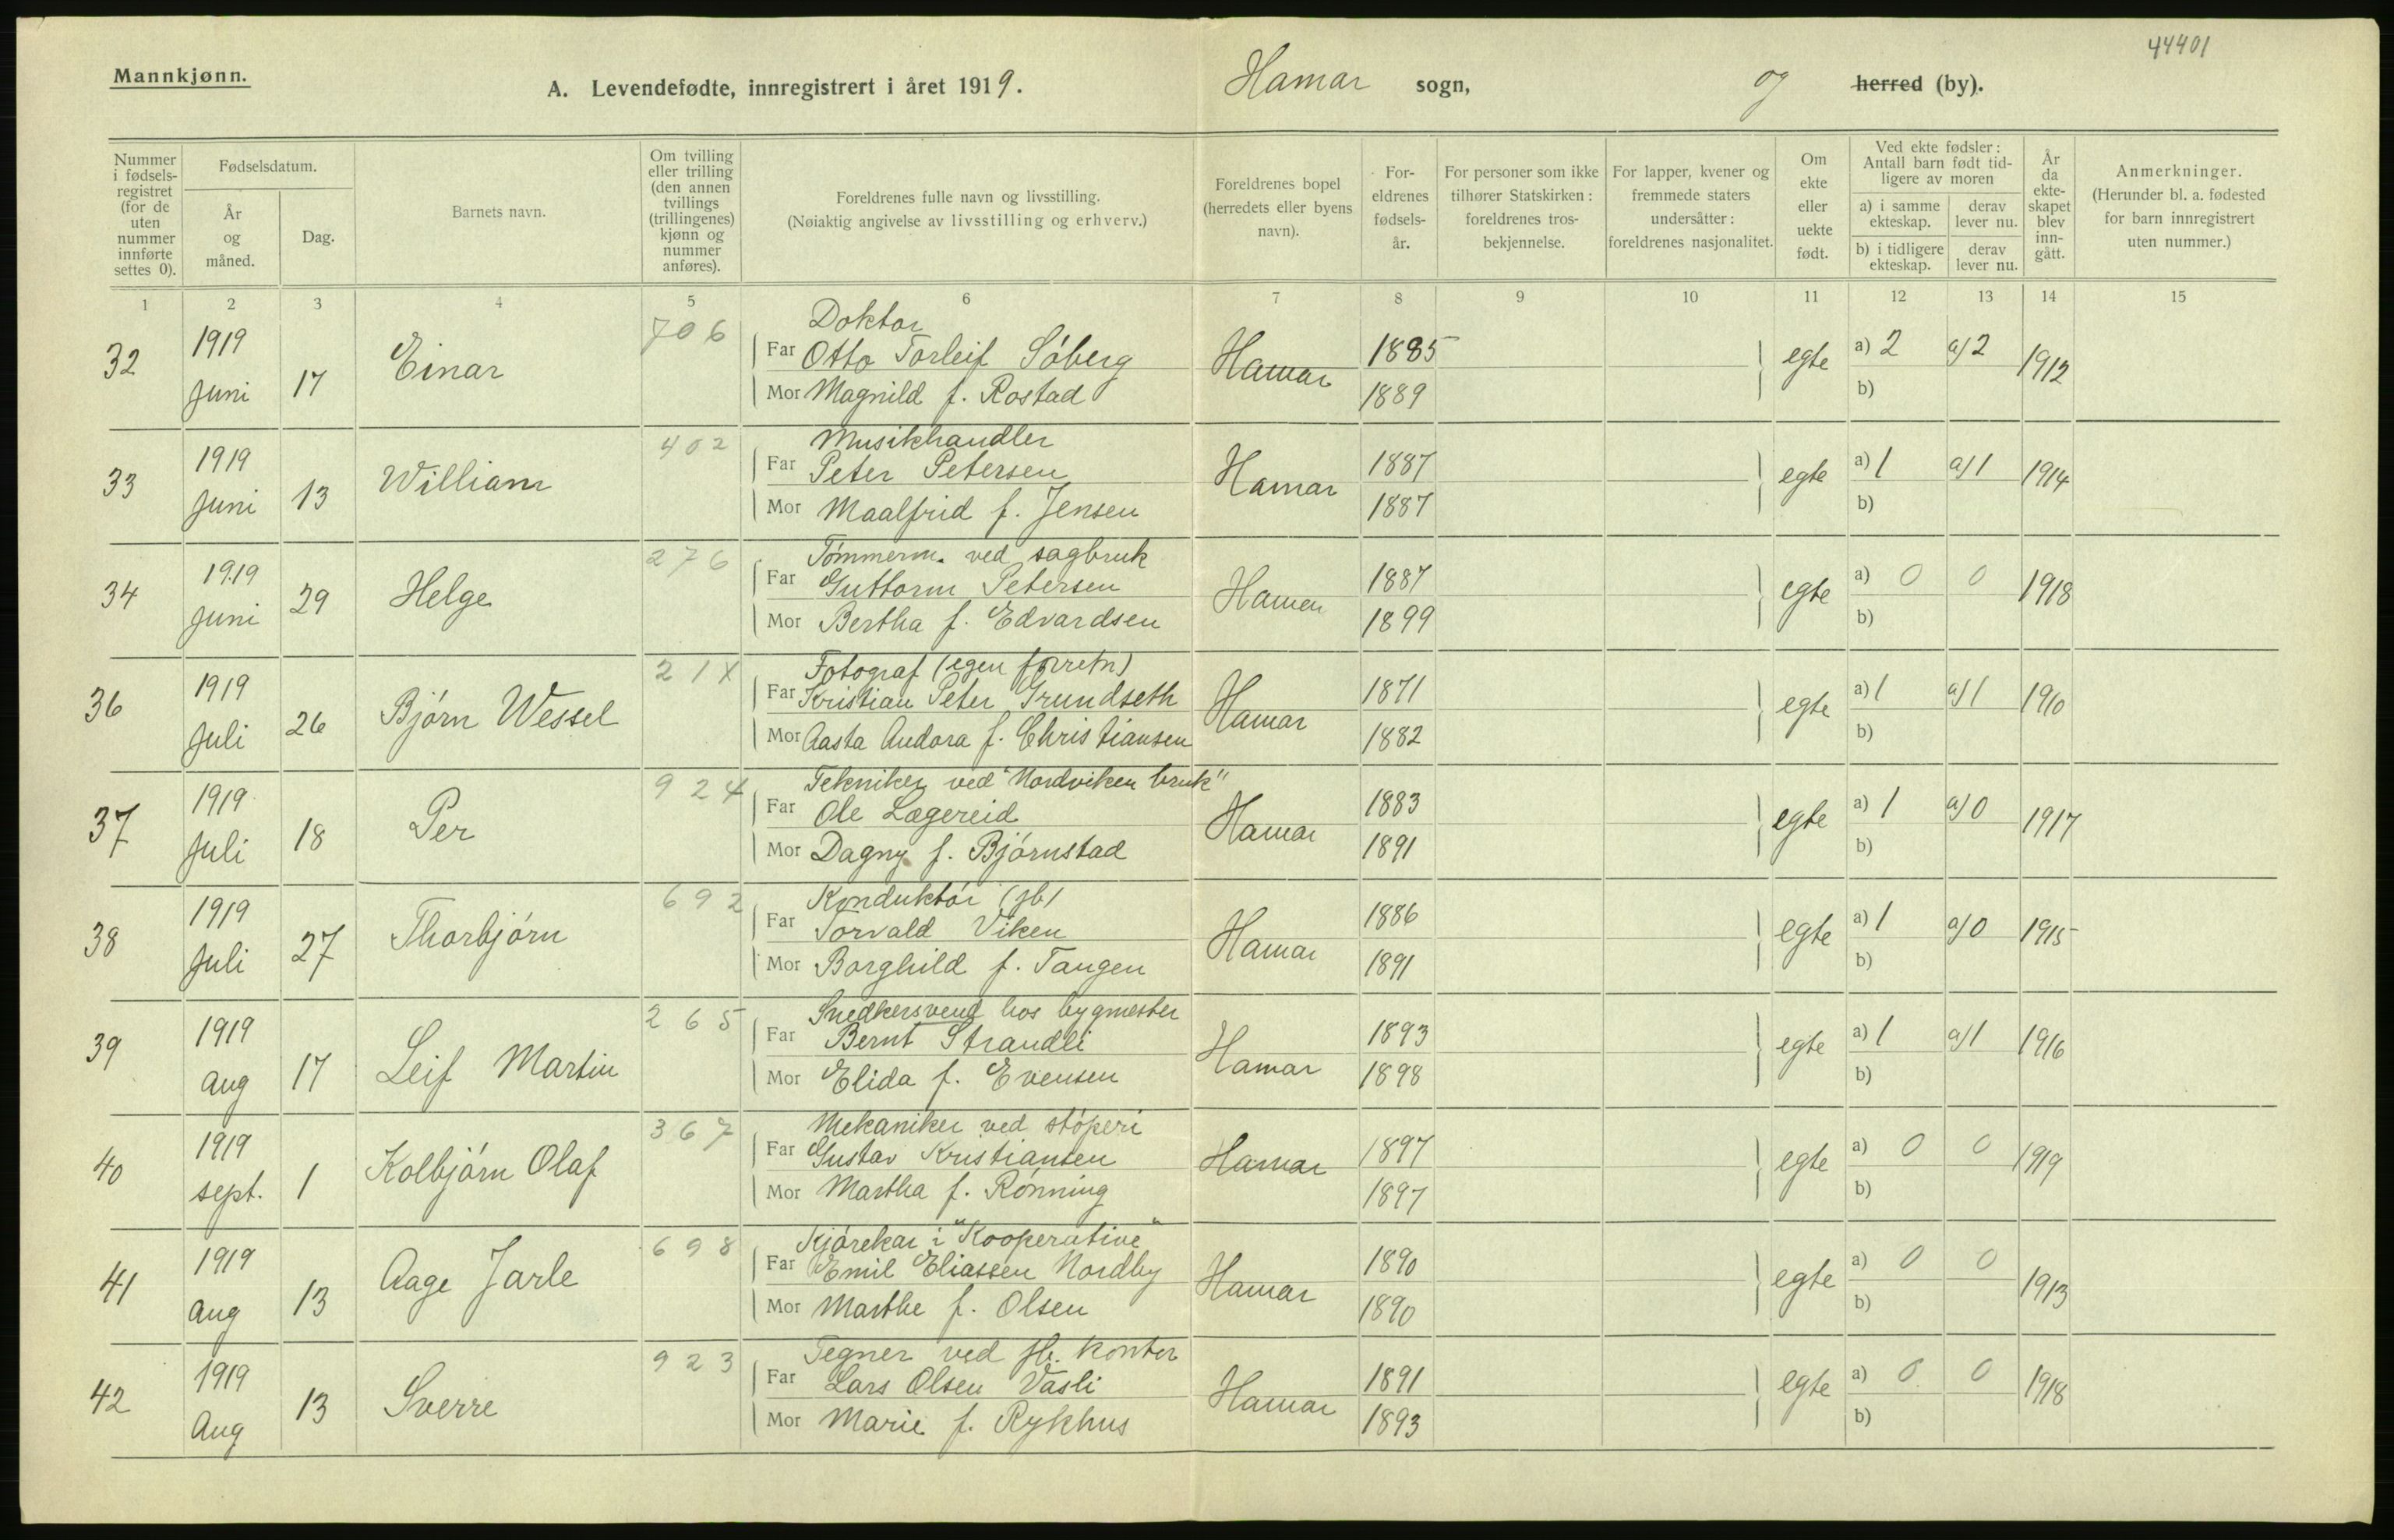 44401
Mannkjønn.
A. Levendefødte, innregistrert i året 1919.
Hamar sogn, og herred (by).
Nummer i fødsels-registret (for de uten nummer innførte settes 0).
Fødselsdatum.
År og måned.
Dag.
Barnets navn.
Om tvilling eller trilling (den annen tvillings (trillingenes) kjønn og nummer anføres).
Foreldrenes fulle navn og livsstilling.
(Nøiaktig angivelse av livsstilling og erhverv.)
Foreldrenes bopel (herredets eller byens navn).
For-eldrenes fødsels-år.
For personer som ikke tilhører Statskirken: foreldrenes tros-bekjennelse.
For lapper, kvener og fremmede staters undersåtter: foreldrenes nasjonalitet.
Om ekte eller uekte født.
Ved ekte fødsler: Antall barn født tid-ligere av moren
a) i samme ekteskap.
derav lever nu.
b) i tidligere ekteskap.
derav lever nu.
År da ekte-skapet blev inn-gått.
Anmerkninger.
(Herunder bl. a. fødested for barn innregistrert uten nummer.)
1 2 3 4 5 6 7 8 9 10 11 12 13 14 15
706 Doktor
32 1919 Juni 17 Einar Far Otto Torleif Söberg Hamar 1885 egte a) 2 a) 2 1912
Mor Magnild f. Rostad 1889 b)
402 Musikhandler
33 1919 Juni 13 William Far Peter Petersen Hamar 1887 egte a) 1 a) 1 1914
Mor Maalfrid f. Jensen 1887 b)
276 Tömmerm. ved sagbruk
34 1919 Juni 29 Helge Far Guttorm Petersen Hamar 1887 egte a) 0 0 1918
Mor Bertha f. Edvardsen 1899 b)
21X Fotograf (egen forretn)
36 1919 Juli 26 Bjórn Wessel Far Kristian Peter Grundseth Hamar 1871 egte a) 1 a) 1 1910
Mor Aasta Andora f. Christiansen 1882 b)
924 Tekniker ved "Nordviken bruk"
37 1919 Juli 18 Per Far Ole Lægereid Hamar 1883 egte a) 1 a) 0 1917
Mor Dagny f. Bjórnstad 1891 b)
692 Konduktór (jb)
38 1919 Juli 27 Thorbjórn Far Torvald Viken Hamar 1886 egte a) 1 a) 0 1915
Mor Borghild f. Tangen 1891 b)
265 Snedkersvend hos bygmester
39 1919 Aug 17 Leif Martin Far Bernt Strandli Hamar 1893 egte a) 1 a) 1 1916
Mor Elida f. Evensen 1898 b)
367 Mekaniker ved stóperi
40 1919 sept. 1 Kolbjórn Olaf Far Gustav Kristiansen Hamar 1897 egte a) 0 0 1919
Mor Martha f. Rónning 1897 b)
698 Kjórekar i "Kooperative"
41 1919 Aug 13 Aage Jarle Far Emil Eliassen Nordby Hamar 1890 egte a) 0 0 1913
Mor Marthe f. Olsen 1890 b)
923 Tegner ved jb. kontor
42 1919 Aug 13 Sverre Far Lars Olsen Vasli Hamar 1891 egte a) 0 0 1918
Mor Marie f. Rykhus 1893 b)